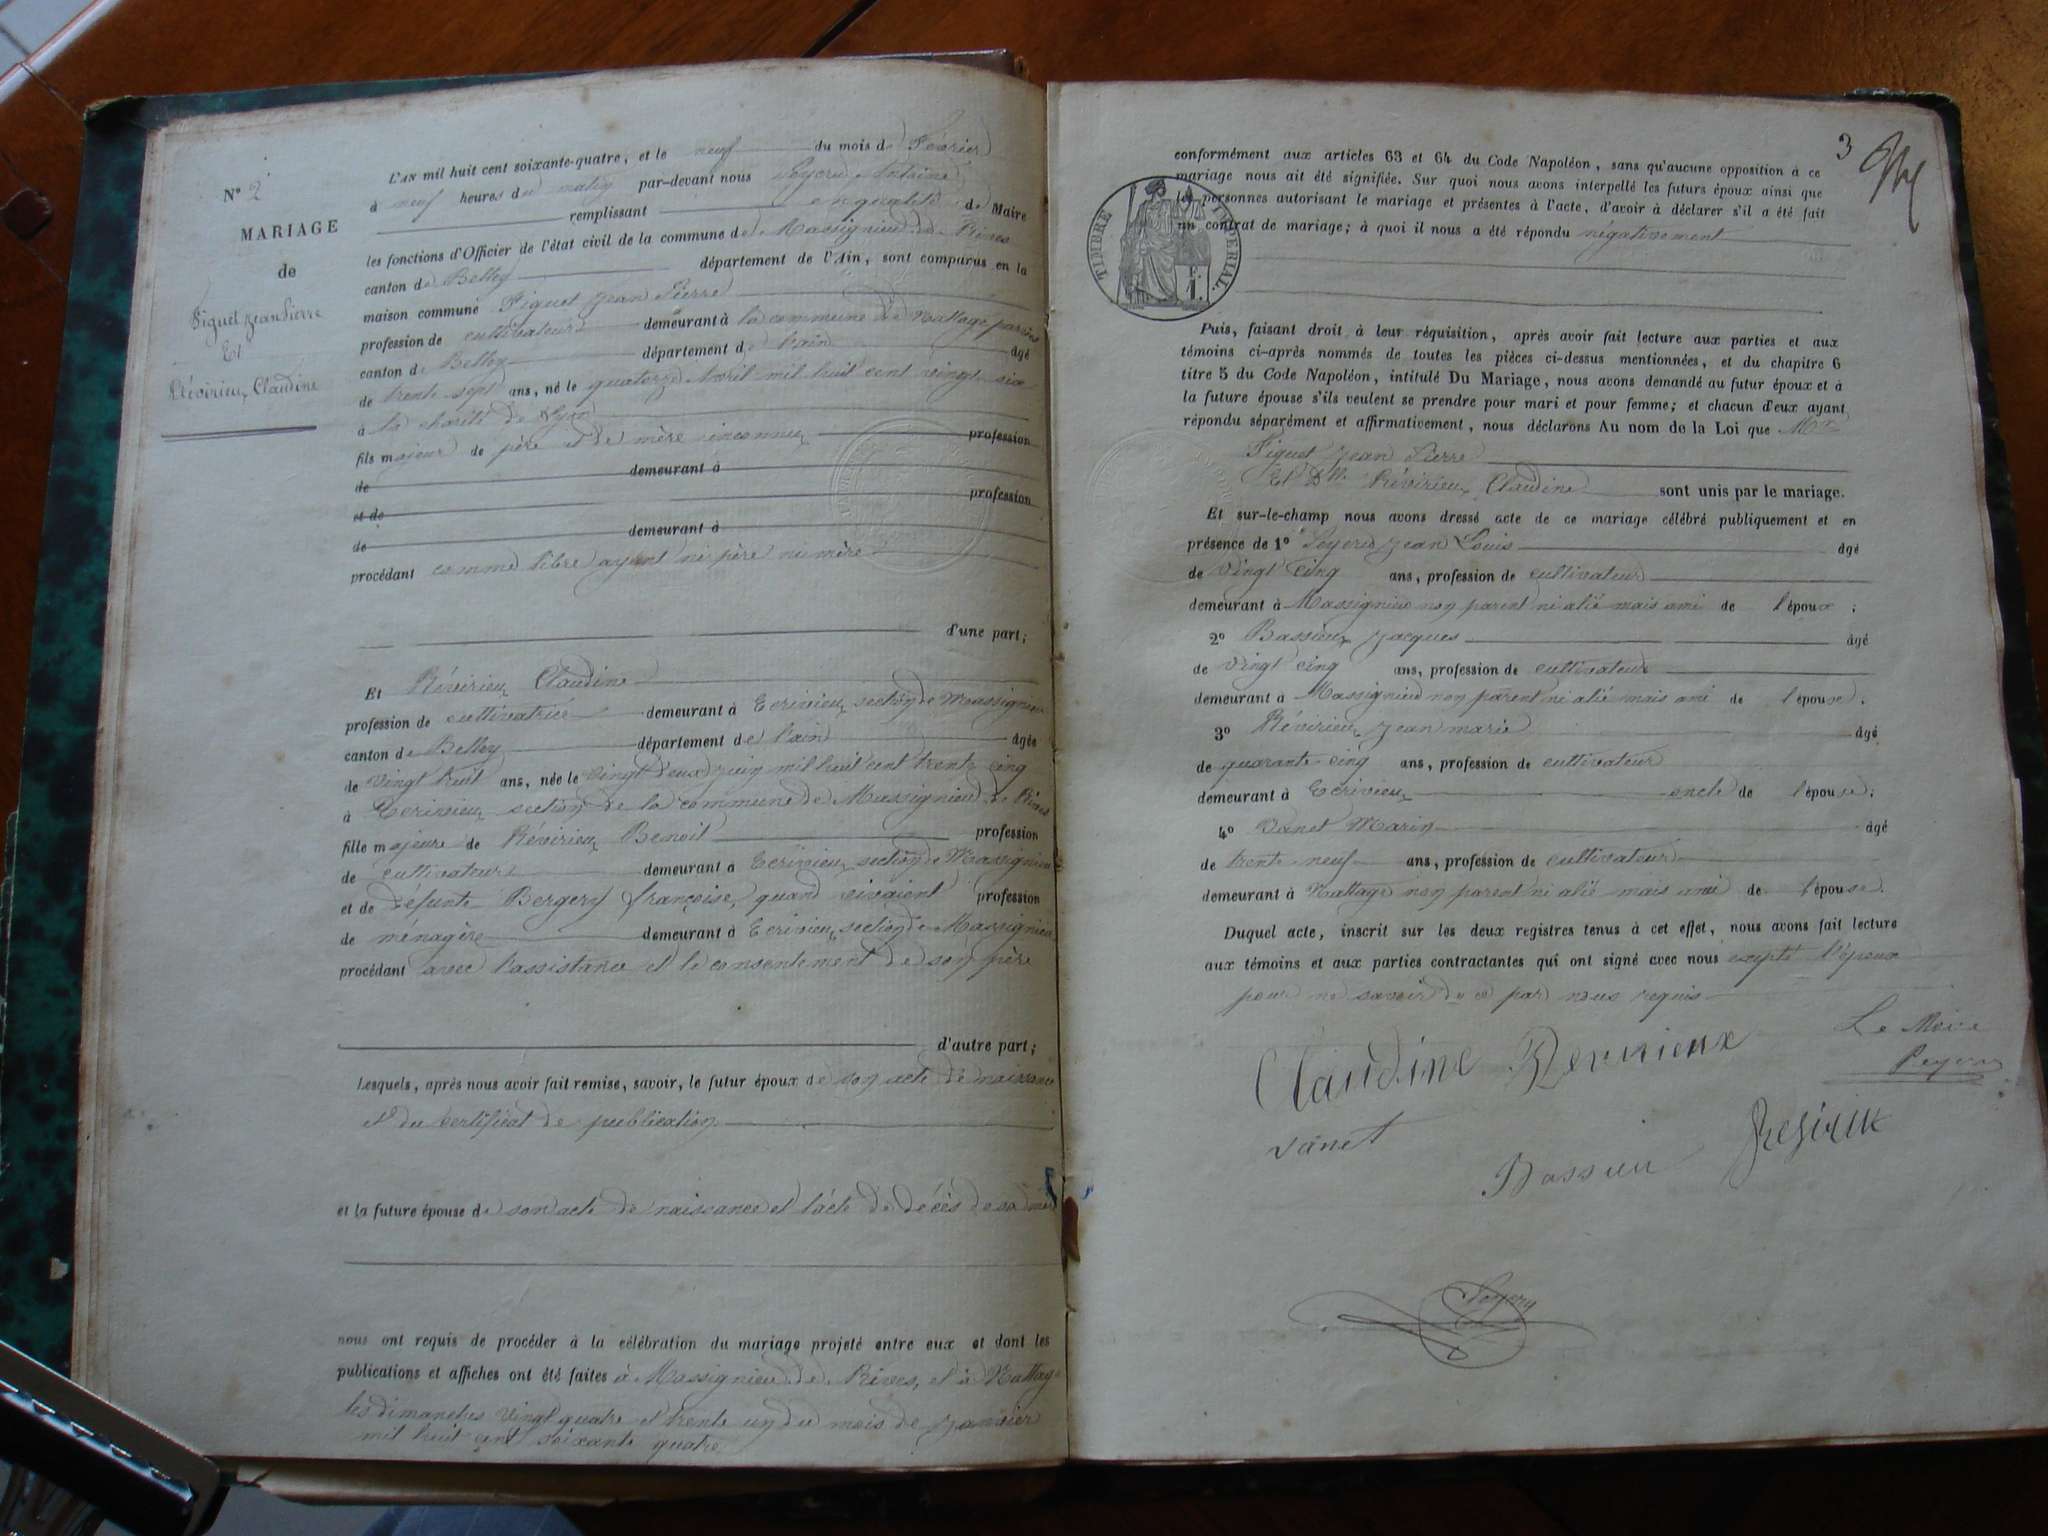 N° 2
MARIAGE
de
Piguet Jean Pierre
Et
Révirieux Claudine
L'AN mil huit cent soixante-quatre, et le neuf du mois de Février
à neuf heures du matin par-devant nous Peyerd Antoine
remplissant en qualité de Maire
les fonctions d'Officier de l'état civil de la commune de Massignieu de Rives
canton de Belley département de l'Ain, sont comparus en la
maison commune Piguet Jean Pierre
profession de cultivateur demeurant à la commune de Nattage
canton de Belley département de l'ain âgé
de trente sept ans, né le quatorze Avril mil huit cent vingt six
à la charité de Lyon
fils majeur de père et de mère inconnus profession
de demeurant à
et de profession
de demeurant à
procédant comme libre ayant ni père ni mère
d'une part;
Et Révirieux Claudine
profession de cultivatrice demeurant à Ecrivieux section de Massignieu
canton de Belley département de l'ain âgée
de vingt huit ans, née le vingt deux Juin mil huit cent trente cinq
à Ecrivieux section de la commune de Massignieu de Rives
fille majeure de Révirieux Benoit profession
de cultivateur demeurant à Ecrivieux section de Massignieu
et de défunte Bergery françoise, quand vivaient profession
de ménagère demeurant à Ecrivieux section de Massignieu
procédant avec l'assistance et le consentement de son père
d'autre part;
Lesquels, après nous avoir fait remise, savoir, le futur époux de son acte de naissance
et du certificat de publication
et la future épouse de son acte de naissance et l'acte de décès de sa mère
nous ont requis de procéder à la célébration du mariage projeté entre eux et dont les
publications et affiches ont été faites à Massignieu de Rives, et à Nattage
les dimanches vingt quatre et trente un du mois de janvier
mil huit cent soixante quatre
3
conformément aux articles 63 et 64 du Code Napoléon, sans qu'aucune opposition à ce
mariage nous ait été signifiée. Sur quoi nous avons interpellé les futurs époux ainsi que
les personnes autorisant le mariage et présentes à l'acte, d'avoir à déclarer s'il a été fait
un contrat de mariage; à quoi il nous a été répondu négativement
TIMBRE IMPERIAL.
Puis, faisant droit à leur réquisition, après avoir fait lecture aux parties et aux
témoins ci-après nommés de toutes les pièces ci-dessus mentionnées, et du chapitre 6
titre 5 du Code Napoléon, intitulé Du Mariage, nous avons demandé au futur époux et à
la future épouse s'ils veulent se prendre pour mari et pour femme; et chacun d'eux ayant
répondu séparément et affirmativement, nous déclarons Au nom de la Loi que Mr
Piguet Jean Pierre
Et Dlle Révirieux Claudine sont unis par le mariage.
Et sur-le-champ nous avons dressé acte de ce mariage célébré publiquement et en
présence de 1° Peyerd Jean Louis âgé
de vingt cinq ans, profession de cultivateur
demeurant à Massignieu non parent ni alié mais ami de l'époux;
2° Bassieux Jacques âgé
de vingt cinq ans, profession de cultivateur
demeurant à Massignieu non parent ni alié mais ami de l'épouse.
3° Révirieux Jean marie âgé
de quarante cinq ans, profession de cultivateur
demeurant à Ecrivieux oncle de l'épouse;
4° Vanet Marin âgé
de trente neuf ans, profession de cultivateur
demeurant à Nattage non parent ni alié mais ami de l'épouse.
Duquel acte, inscrit sur les deux registres tenus à cet effet, nous avons fait lecture
aux témoins et aux parties contractantes qui ont signé avec nous excepté l'époux
pour ne savoir de ce par nous requis
Claudine Revirieux
Le Maire
vanet
Bassieu